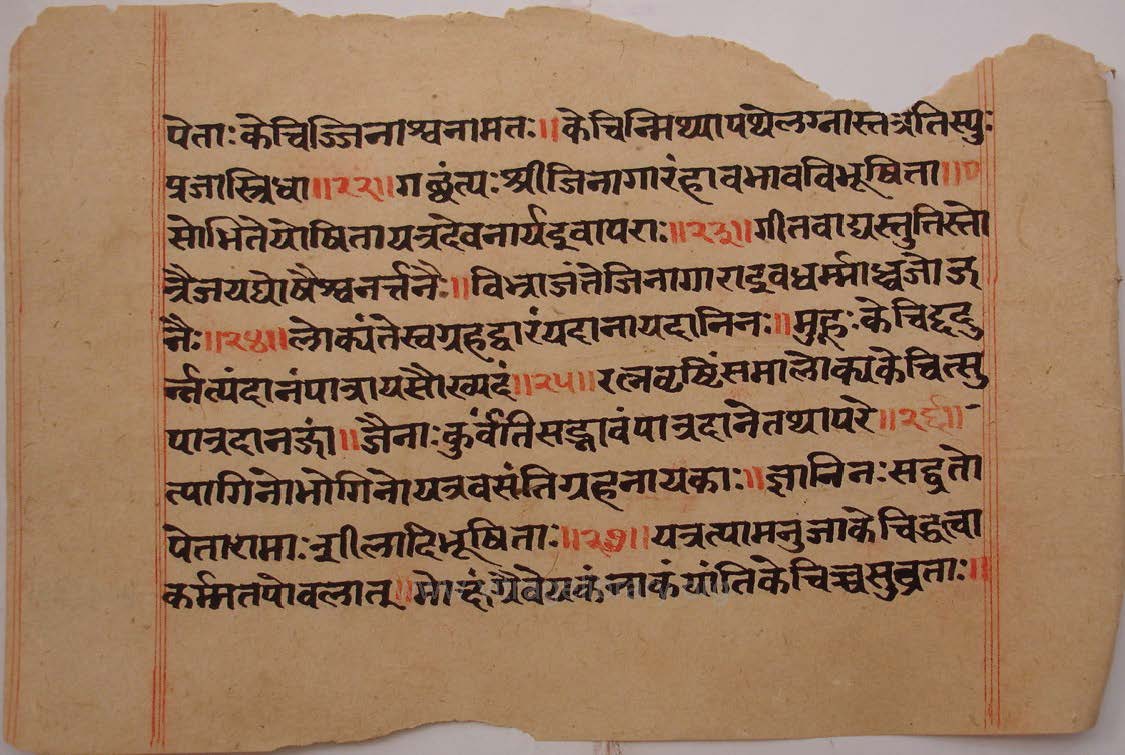 पेताः केचिज्जिनाश्वनामतः॥ केचिन्मिथ्यापथेलग्नास्तत्रेतिस्पुः
प्रजास्त्रिधा॥२२॥ गछंत्यः श्रीजिनागारंहावभावविभूषिता॥
सोभितेयोषितायत्रदेवनार्यइवापराः॥२३॥ गीतवाद्यस्तुतिस्तो
त्रैजयघोषैश्चनर्त्तनैः॥ विभ्राजंतेजिनागाराइवधर्म्माध्वजोज
नैः॥२४॥ लोक्यंतेस्वग्रहद्वारंयदानायदानिनः॥ मुहुः केचिद्ददु
र्न्नत्यंदानंपात्रायसौख्यदं॥२५॥ रत्नवृष्टिंसमालोक्यकेचित्सु
पात्रदानजां॥ जैनाः कुर्वंतिसद्भावंपात्रदानेतथापरे॥२६॥
त्यागिनोभोगिनोयत्रवसंतिग्रहनायकाः॥ ज्ञानिनः सद्वृतो
पेतारामाः शीलादिभूषिताः॥२७॥ यत्रत्यामनुजाकेचिद्धत्वा
कर्म्मतपोवलात्॥ मोक्षंग्रैवेयकंनाकंयांतिकेचिच्चसुव्रताः॥